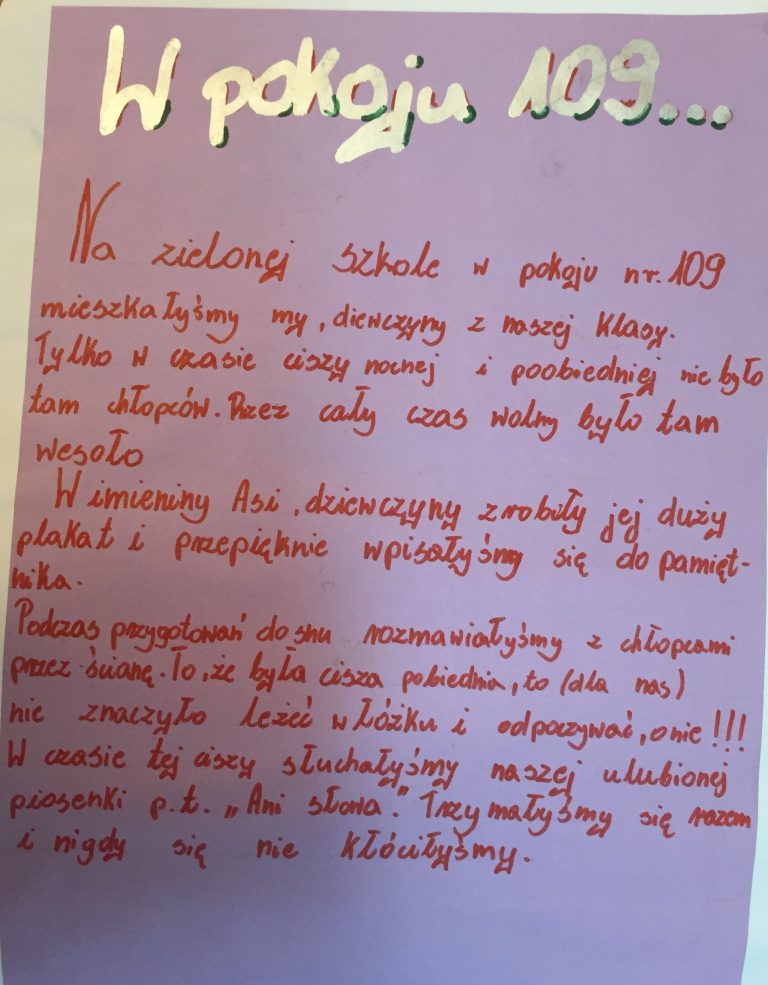 W pokoju 109...
Na zielonej szkole w pokoju nr. 109
mieszkałyśmy my, diewczyny z naszej klasy.
Tylko w czasie ciszy nocnej i poobiedniej nie było
tam chłopców. Przez cały czas wolny było tam
wesoło
W imieniny Asi, dziewczyny zrobiły jej duży
plakat i przepięknie wpisałyśmy się do pamięt-
nika.
Podczas przygotowań do snu rozmawiałyśmy z chłopcami
przez ścianę. To, że była cisza pobiednia, to (dla nas)
nie znaczyło leżeć w łóżku i odpoczywać, o nie!!!
W czasie tej ciszy słuchałyśmy naszej ulubionej
piosenki p.t. „Ani słowa". Trzymałyśmy się razem
i nigdy się nie kłóciłyśmy.